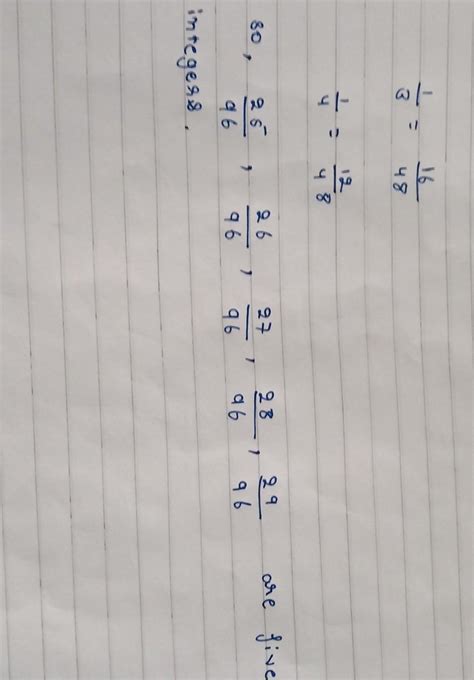 1/3 = 16/48
1/4 = 12/48
so, 25/96, 26/96, 27/96, 28/96, 29/96 are five
integers.